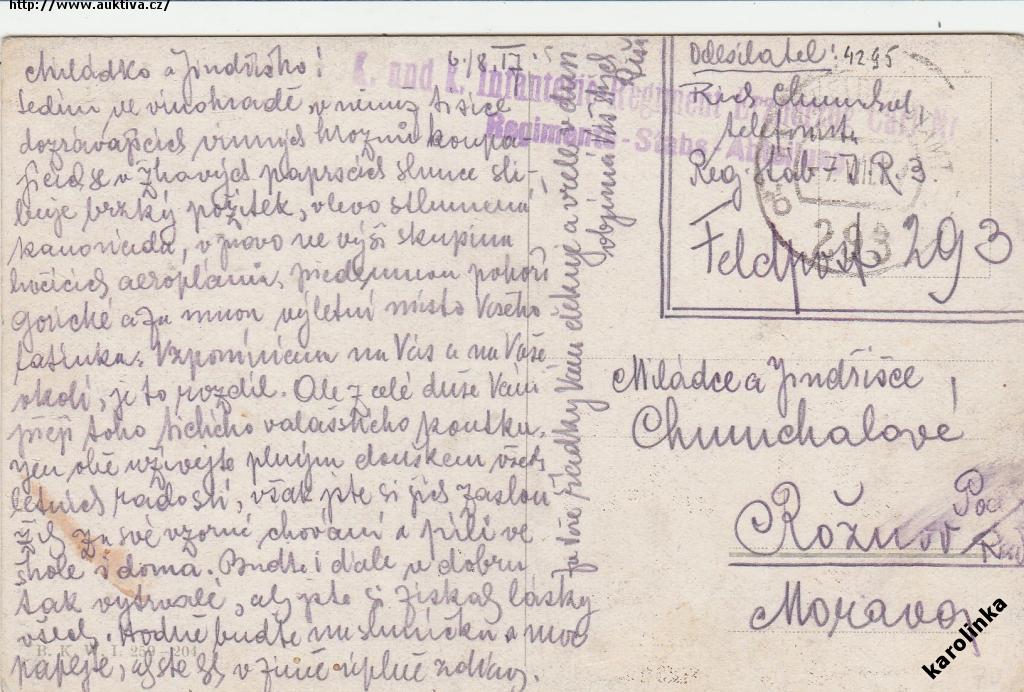 http://www.auktiva.cz/
6/8. 17
Mládko a Jindřiško!
Sedím ve vinohradě, v němž tisíce
dozrávajících vinných hroznů koupa-
jících se v žhavých paprscích slunce sli-
buje brzký požitek, vlevo stlumená
kanonáda, v pravo ve výši skupina
kroužících aeroplánů, předemnou pohoří
Gorické a za mnou výletní místo Vašeho
tatínka. Vzpomínám na Vás a na Vaše
okolí, je to rozdíl. Ale z celé duše Vám
přeji toho tichého valašského koutku.
Jen obě užívejte plným douškem všech
letních radostí, však jste si jich zaslou
žily za své vzorné chování a píli ve
škole i doma. Buďte i dále v dobru
tak vytrvalé, aby jste si získaly lásky
všech. Hodně buďte na sluníčku a moc
papejte, abyste byly v zimě úplně zdrávy.
Za tvé řádky Vám děkuje a vřele Vás
objímá Váš strýc
B. K. W. I. 259-204
K. und k. Infanterie-Regiment Erzherzog Carl Nr
Regiments-Stabs-Abteilung
Odesílatel: 4295
Rud. Chumchal
telefonista
Reg. Stab I. R. 3.
Feldpost 293
293
Mládce a Jindřišce
Chumchalově
Rožnov
Pod
Rad
Morava
karolinka